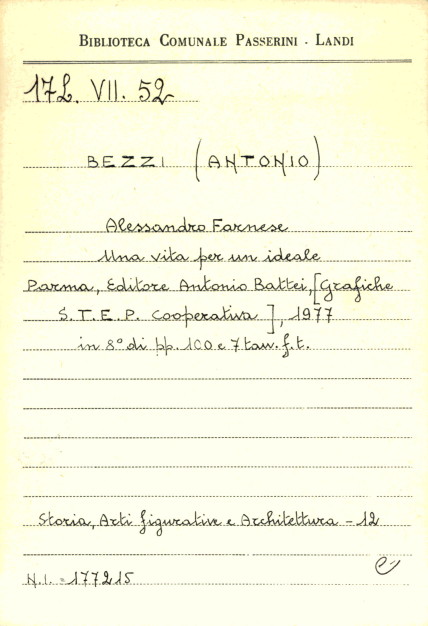 BIBLIOTECA COMUNALE PASSERINI - LANDI
17L. VII. 52
BEZZI (ANTONIO)
Alessandro Farnese
Una vita per un ideale
Parma, Editore Antonio Battei, [Grafiche
S.T.E.P. Cooperativa], 1977
in 8° di pp. 100 e 7 tav. f.t.
Storia, Arti figurative e Architettura - 12
N.I. = 177215